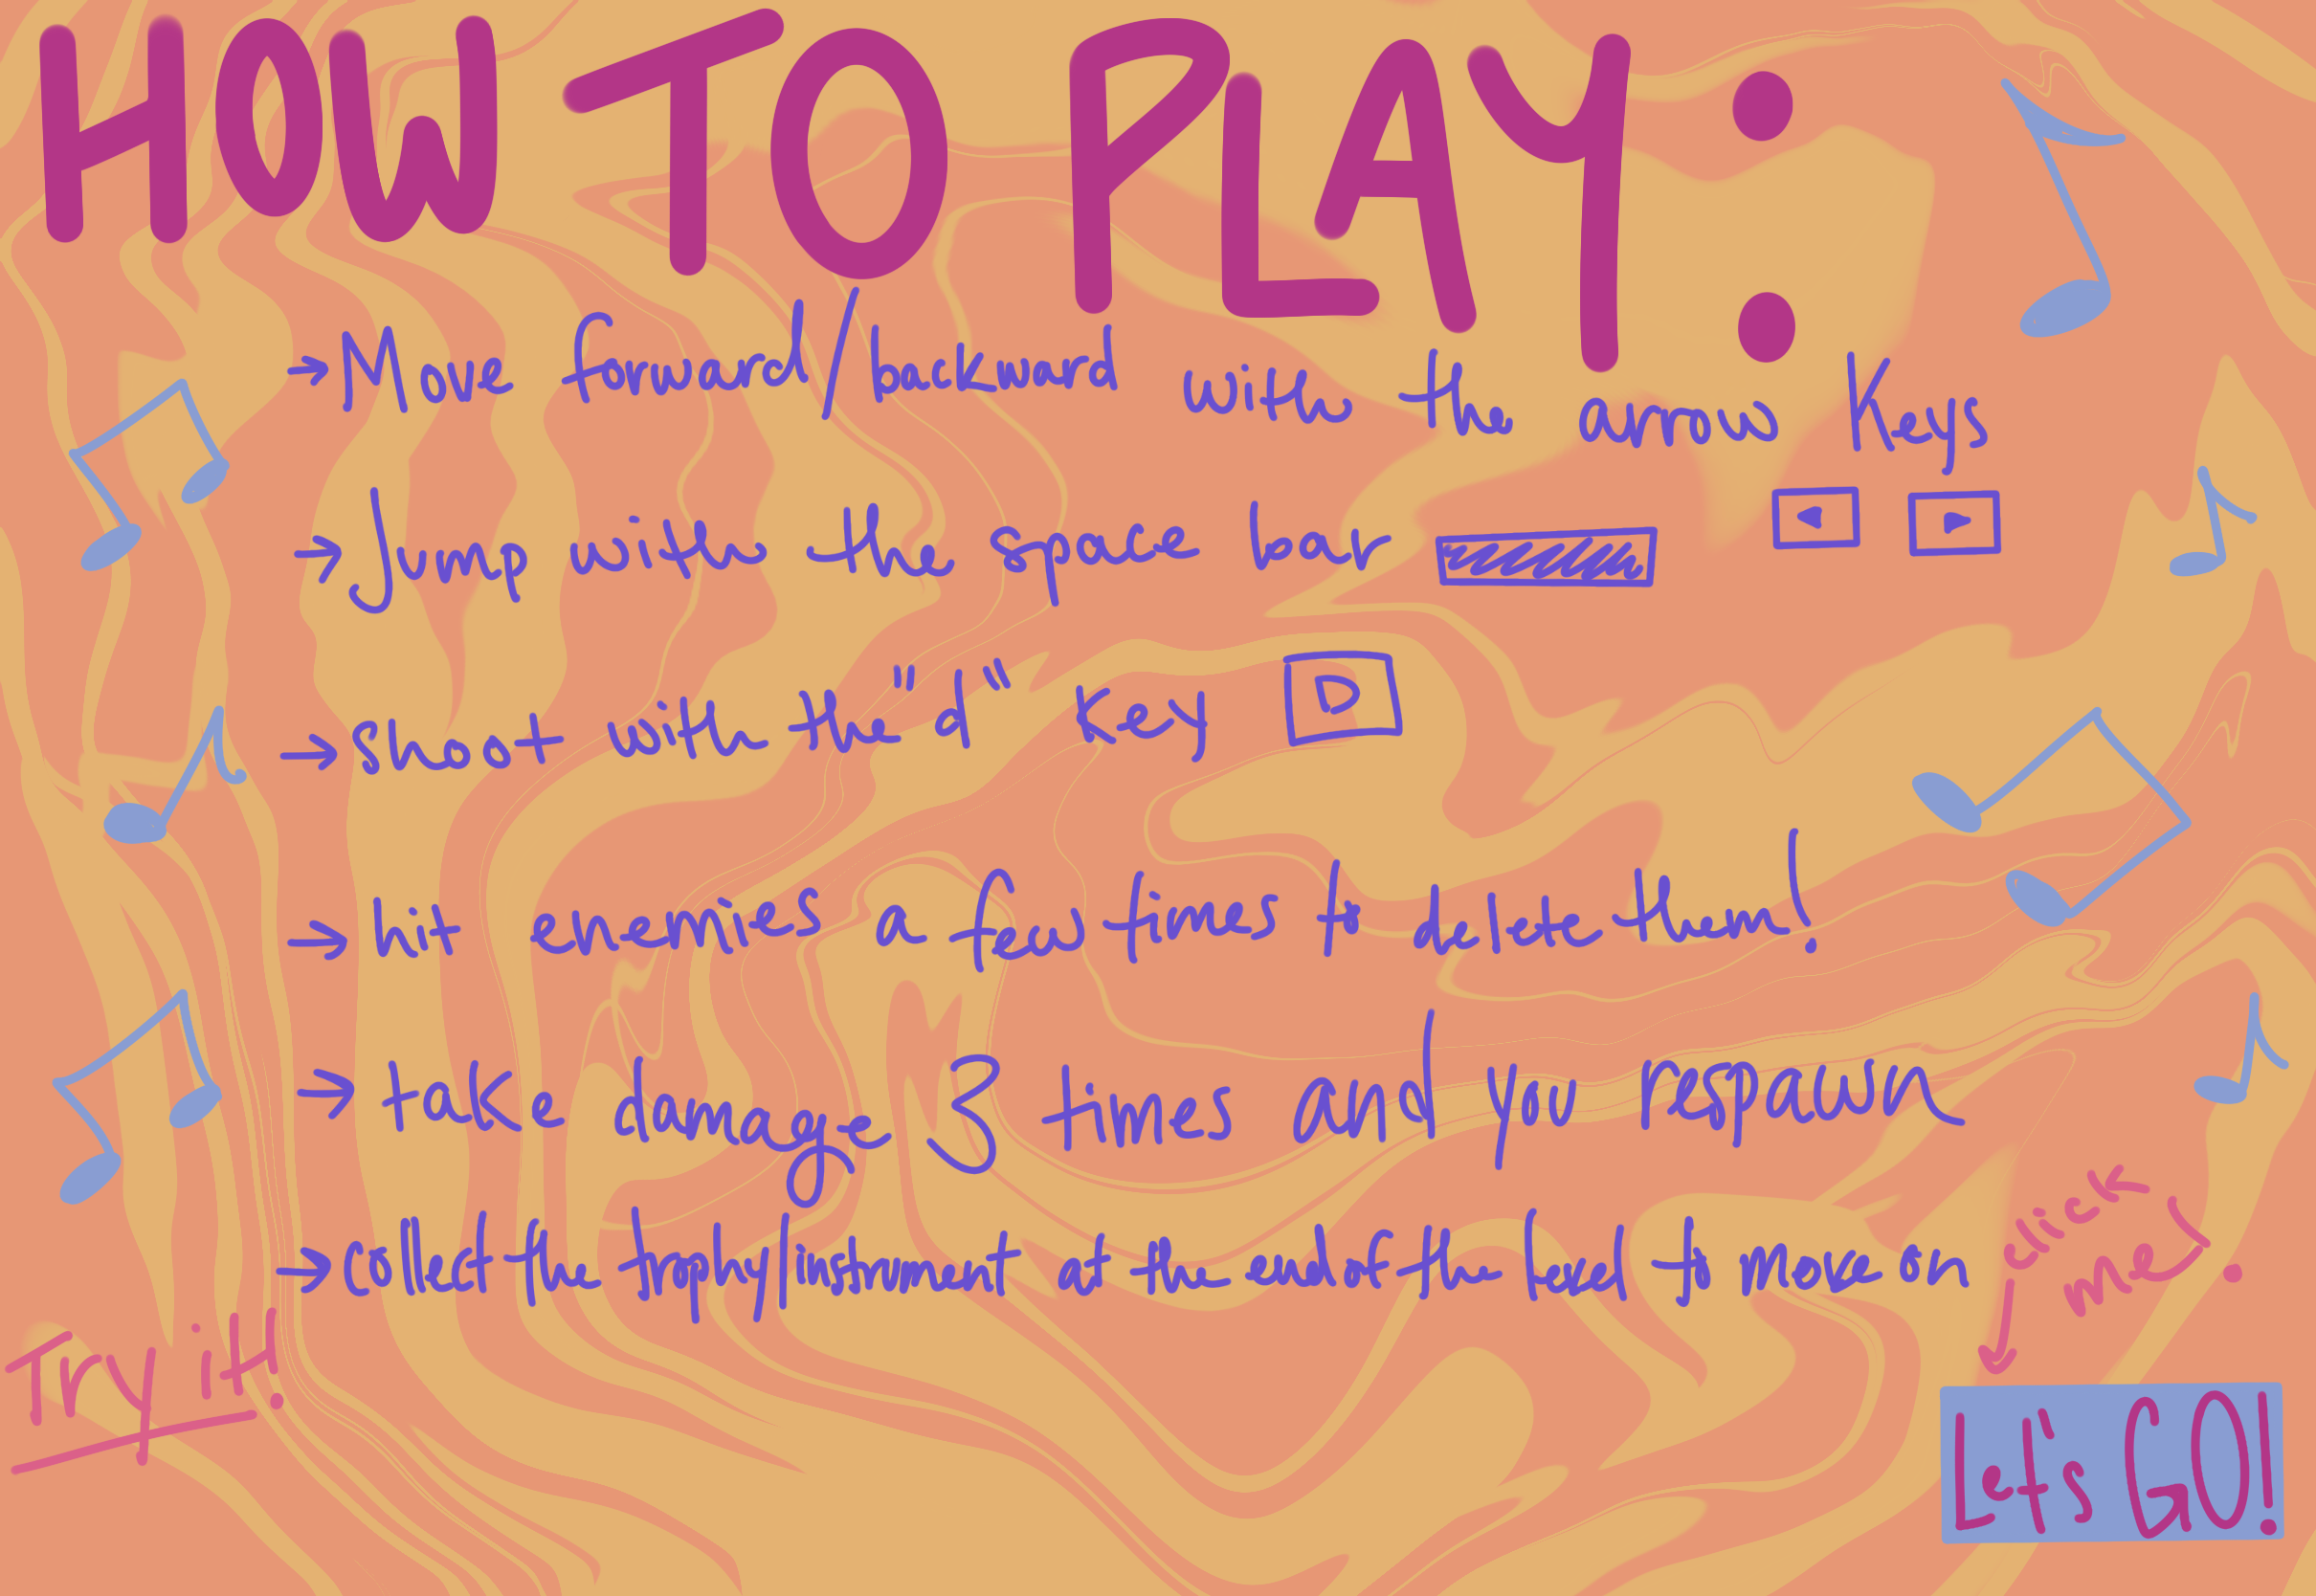 HOW TO PLAY:
→ Move forward/backward with the arrow keys
→ Jump with the space bar
→ Shoot with the "d" key D
→ hit enemies a few times to delete them!
→ take damage 3 times and you respawn
→ collect the trophy/instrument at the end of the level to move on
Try it!
click me!
Let's GO!